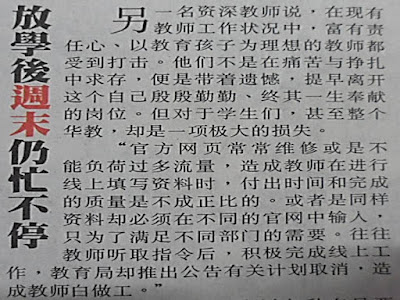 放學後週末仍忙不停
另一名资深教师说，在现有
教师工作状况中，富有责
任心、以教育孩子为理想的教师都
受到打击。他们不是在痛苦与挣扎
中求存，便是带着遗憾，提早离开
这个自己殷殷勤勤、终其一生奉献
的岗位。但对于学生们，甚至整个
华教，却是一项极大的损失。
“官方网页常常维修或是不
能负荷过多流量，造成教师在进行
线上填写资料时，付出时间和完成
的质量是不成正比的。或者是同样
资料却必须在不同的官网中输入，
只为了满足不同部门的需要。往往
教师听取指令后，积极完成线上工
作，教育局却推出公告有关计划取消，造
成教师白做工。”